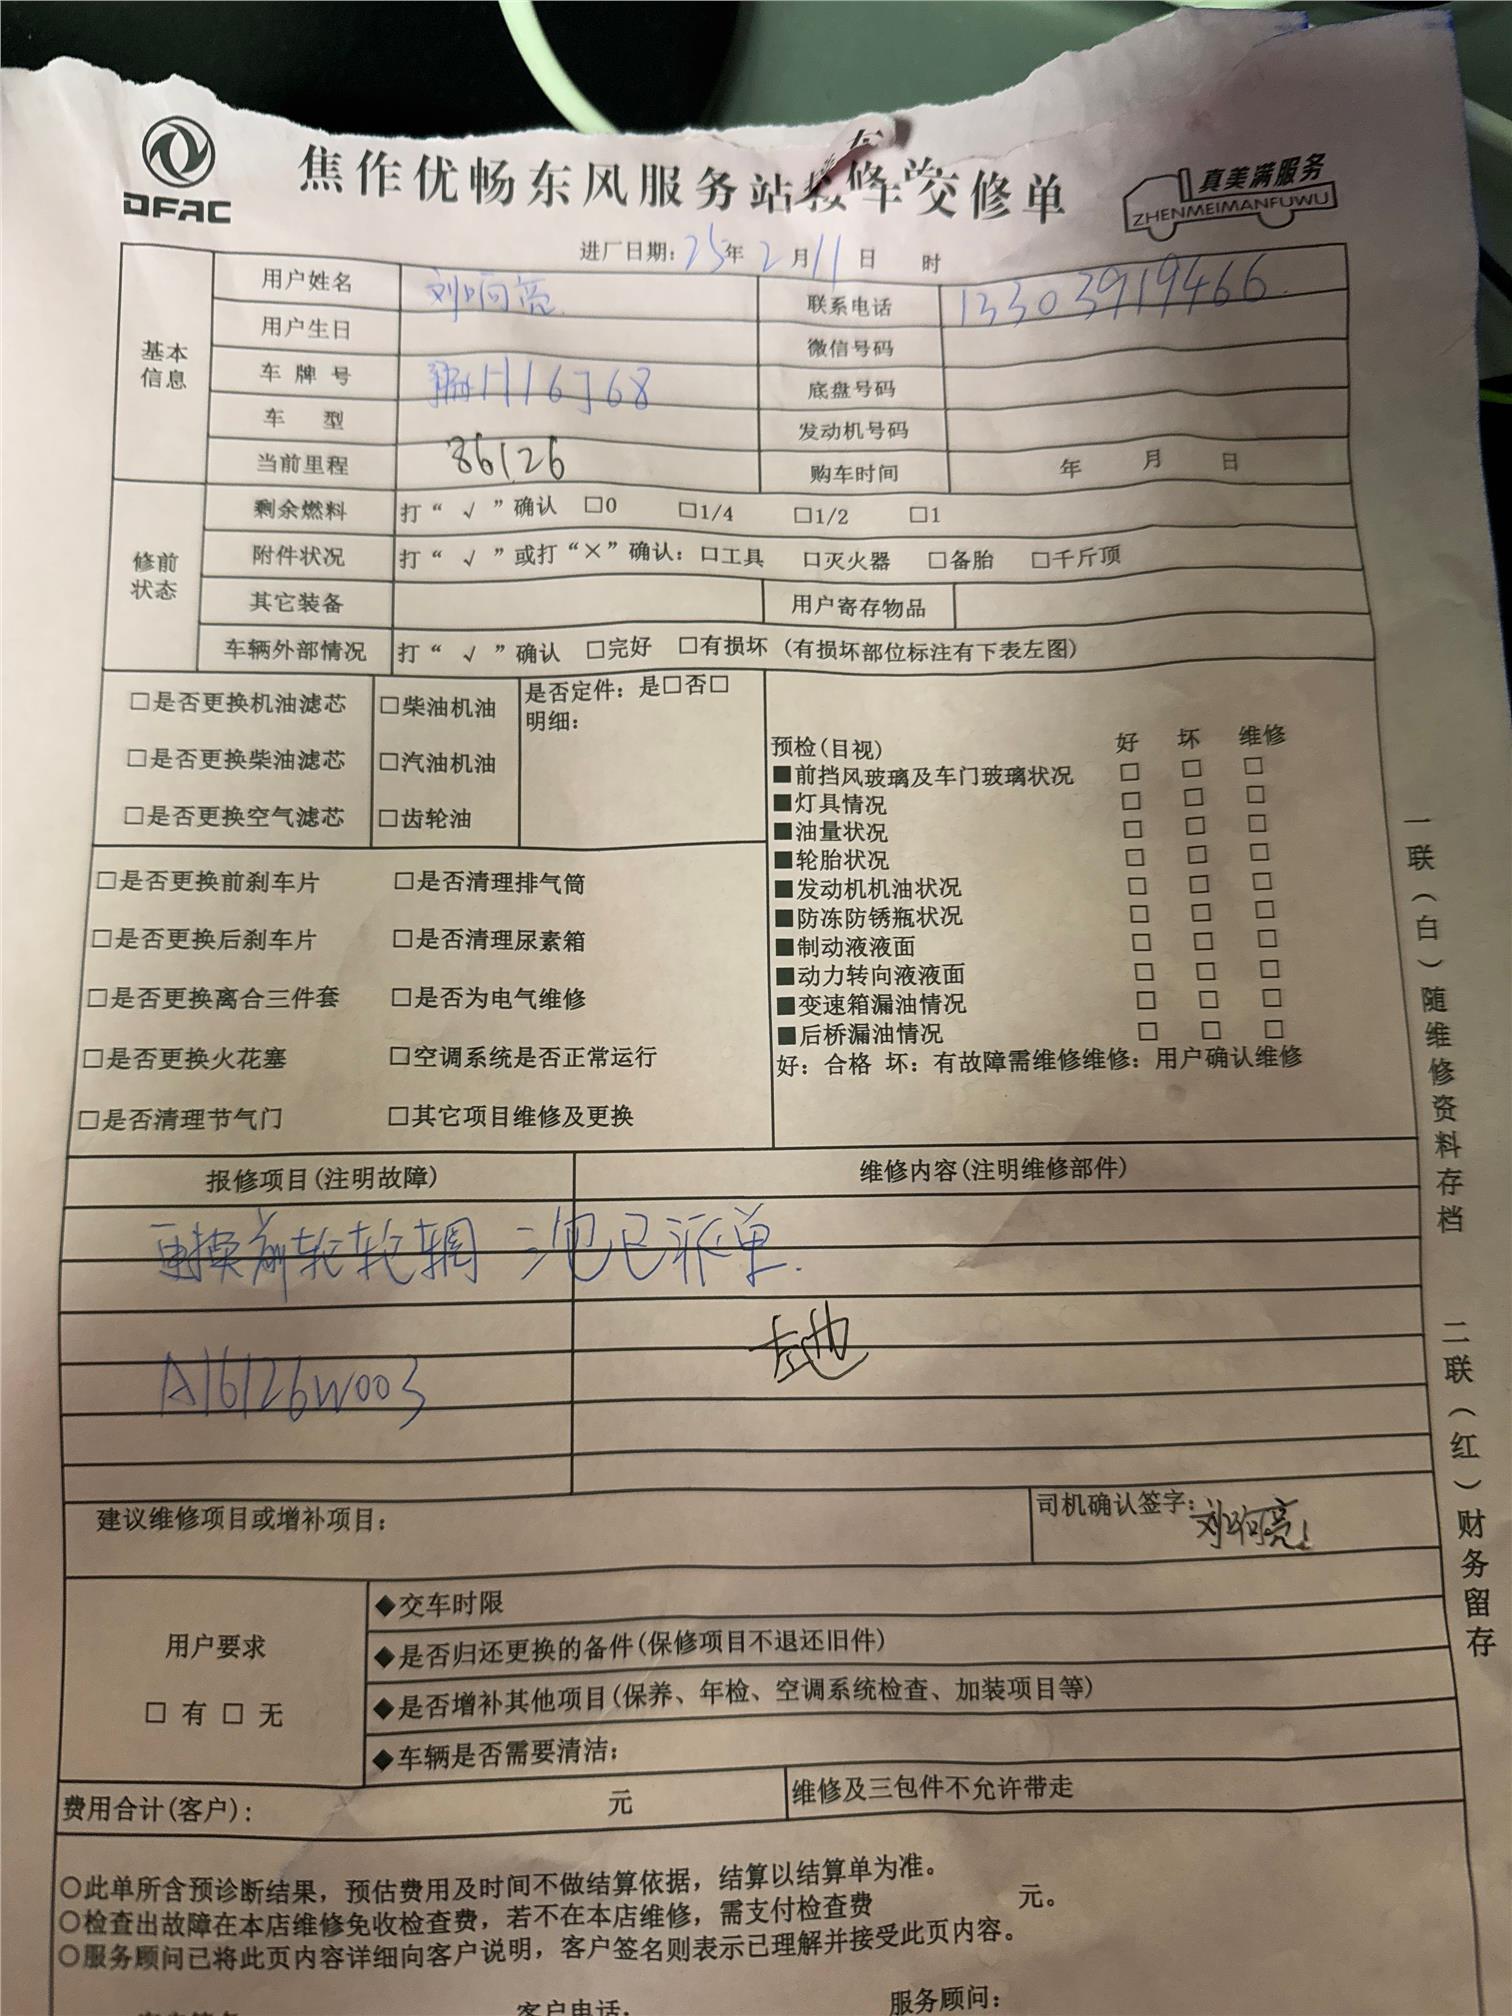 DFAC
焦作优畅东风服务站接车交修单
真美满服务
ZHENMEIMANFUWU
进厂日期：25年2月11日 时
基本信息
用户姓名 刘响亮 联系电话 13303919466
用户生日 微信号码
车牌号 豫H16J68 底盘号码
车型 发动机号码
当前里程 86126 购车时间 年 月 日
修前状态
剩余燃料 打“√”确认 □0 □1/4 □1/2 □1
附件状况 打“√”或打“×”确认：□工具 □灭火器 □备胎 □千斤顶
其它装备 用户寄存物品
车辆外部情况 打“√”确认 □完好 □有损坏 (有损坏部位标注有下表左图)
□是否更换机油滤芯 □柴油机油 是否定件：是□否□
明细：
□是否更换柴油滤芯 □汽油机油
□是否更换空气滤芯 □齿轮油
□是否更换前刹车片 □是否清理排气筒
□是否更换后刹车片 □是否清理尿素箱
□是否更换离合三件套 □是否为电气维修
□是否更换火花塞 □空调系统是否正常运行
□是否清理节气门 □其它项目维修及更换
预检(目视) 好 坏 维修
■前挡风玻璃及车门玻璃状况 □ □ □
■灯具情况 □ □ □
■油量状况 □ □ □
■轮胎状况 □ □ □
■发动机机油状况 □ □ □
■防冻防锈瓶状况 □ □ □
■制动液液面 □ □ □
■动力转向液液面 □ □ □
■变速箱漏油情况 □ □ □
■后桥漏油情况 □ □ □
好：合格 坏：有故障需维修维修：用户确认维修
报修项目(注明故障) 维修内容(注明维修部件)
更换前轮轮辋 三包已派单.
A16126W003
建议维修项目或增补项目：
司机确认签字：刘响亮
用户要求
□ 有 □ 无
◆交车时限
◆是否归还更换的备件(保修项目不退还旧件)
◆是否增补其他项目(保养、年检、空调系统检查、加装项目等)
◆车辆是否需要清洁：
费用合计(客户)： 元 维修及三包件不允许带走
○此单所含预诊断结果，预估费用及时间不做结算依据，结算以结算单为准。
○检查出故障在本店维修免收检查费，若不在本店维修，需支付检查费 元。
○服务顾问已将此页内容详细向客户说明，客户签名则表示已理解并接受此页内容。
客户电话： 服务顾问：
一联（白）随维修资料存档
二联（红）财务留存